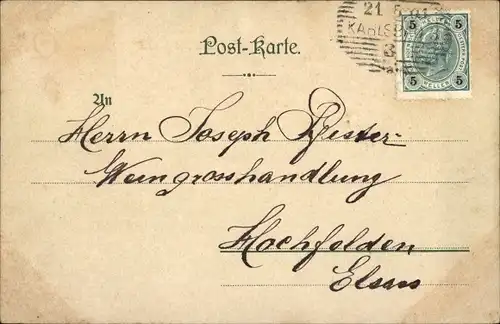 21 5 01
KARLSB
3
5 5
HELLER
5 5
Post-Karte.
An
Herrn Joseph Pfister
Weingrosshandlung
Hochfelden
Elsass